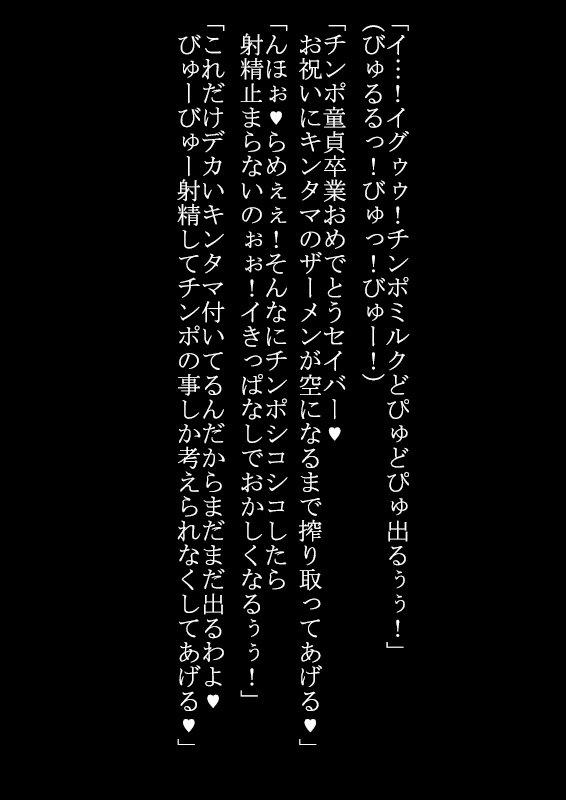 「イ…！イグゥゥ！チンポミルクどぴゅどぴゅ出るぅぅ！」
(びゅるるっ！びゅっ！びゅー！)
「チンポ童貞卒業おめでとうセイバー♥
お祝いにキンタマのザーメンが空になるまで搾り取ってあげる♥」
「んほぉ♥らめぇぇ！そんなにチンポシコシコしたら
射精止まらないのぉぉ！イきっぱなしでおかしくなるぅぅ！」
「これだけデカいキンタマ付いてるんだからまだまだ出るわよ♥
びゅーびゅー射精してチンポの事しか考えられなくしてあげる♥」